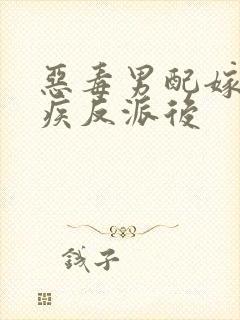 惡毒男配嫁
疾反派後
錢子